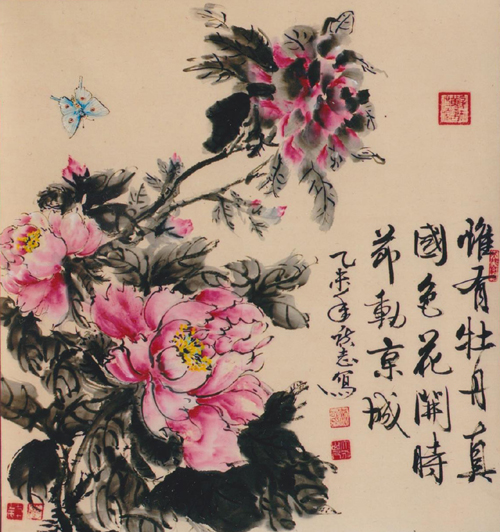 惟有牡丹真
國色花開時
節動京城
乙未年志寫